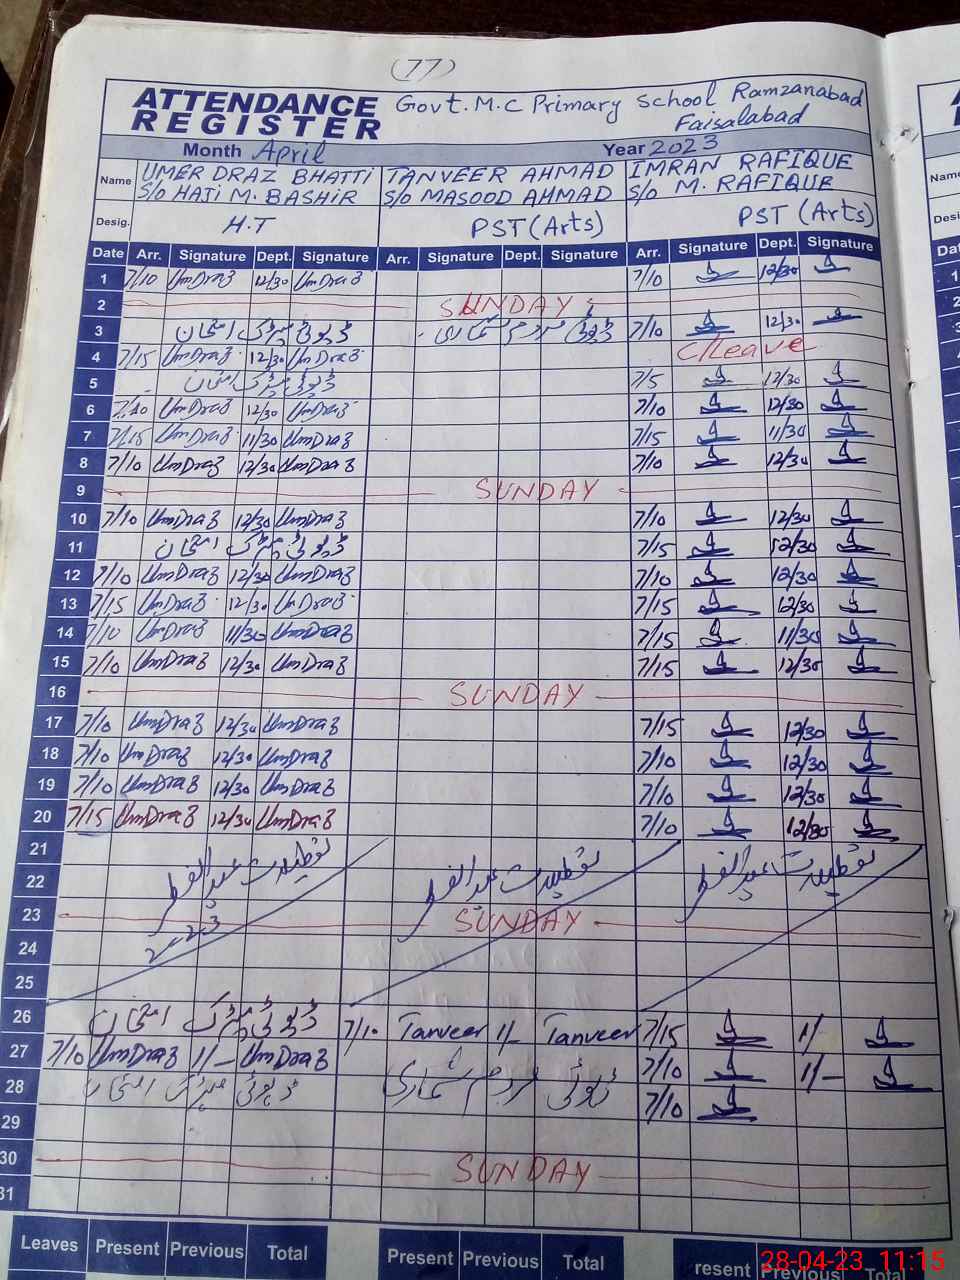 (77)
ATTENDANCE REGISTER Govt. M.C Primary School Ramzanabad Faisalabad
Month April Year 2023
Name UMER DRAZ BHATTI S/O HAJI M. BASHIR TANVEER AHMAD S/O MASOOD AHMAD IMRAN RAFIQUE S/O M. RAFIQUE
Desig. H.T PST (Arts) PST (Arts)
Date Arr. Signature Dept. Signature Arr. Signature Dept. Signature Arr. Signature Dept. Signature
1 7/10 UmDraz 12/30 UmDraz 7/10 12/30
2 SUNDAY
3 ڈیوٹی میٹرک امتحان ڈیوٹی مردم شماری 7/10 12/30
4 7/15 UmDraz 12/30 UmDraz C/Leave
5 ڈیوٹی میٹرک امتحان 7/5 12/30
6 7/10 UmDraz 12/30 UmDraz 7/10 12/30
7 7/15 UmDraz 11/30 UmDraz 7/15 11/30
8 7/10 UmDraz 12/30 UmDraz 7/10 12/30
9 SUNDAY
10 7/10 UmDraz 12/30 UmDraz 7/10 12/30
11 ڈیوٹی میٹرک امتحان 7/15 12/30
12 7/10 UmDraz 12/30 UmDraz 7/10 12/30
13 7/15 UmDraz 12/30 UmDraz 7/15 12/30
14 7/10 UmDraz 11/30 UmDraz 7/15 11/30
15 7/10 UmDraz 12/30 UmDraz 7/15 12/30
16 SUNDAY
17 7/10 UmDraz 12/30 UmDraz 7/15 12/30
18 7/10 UmDraz 12/30 UmDraz 7/10 12/30
19 7/10 UmDraz 12/30 UmDraz 7/10 12/30
20 7/15 UmDraz 12/30 UmDraz 7/10 12/30
21
22 تعطیلات عیدالفطر تعطیلات عیدالفطر تعطیلات عیدالفطر
23 SUNDAY
24
25
26 ڈیوٹی میٹرک امتحان 7/10 Tanveer 1/- Tanveer 7/15 1/
27 7/10 UmDraz 1/- UmDraz 7/10 1/-
28 ڈیوٹی میٹرک امتحان ڈیوٹی مردم شماری 7/10
29
30 SUNDAY
31
Leaves Present Previous Total Present Previous Total resent Previous Total
28-04-23 11:15